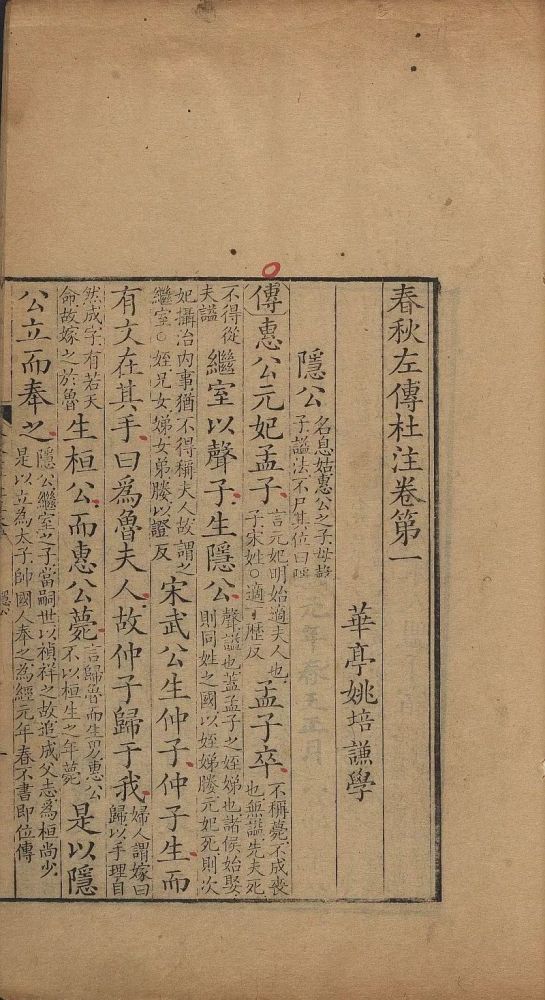 春秋左傳杜注卷第一
華亭姚培謙學
隱公名息姑惠公之子母聲子諡法不尸其位曰隱
傳惠公元妃孟子言元妃明始適夫人也子宋姓○適丁歷反孟子卒不稱薨不成喪也無諡先夫死
不得從夫諡繼室以聲子生隱公聲諡也蓋孟子之姪娣也諸侯始娶則同姓之國以姪娣媵元妃死則次
妃攝治內事猶不得稱夫人故謂之繼室○姪兄女娣女弟媵以證反宋武公生仲子仲子生而
有文在其手曰爲魯夫人故仲子歸于我婦人謂嫁曰歸以手理自
然成字有若天命故嫁之於魯生桓公而惠公薨言歸魯而生男惠公不以桓生之年薨是以隱
公立而奉之隱公繼室之子當嗣世以禎祥之故追成父志為桓尚少是以立為太子帥國人奉之為經元年春不書即位傳